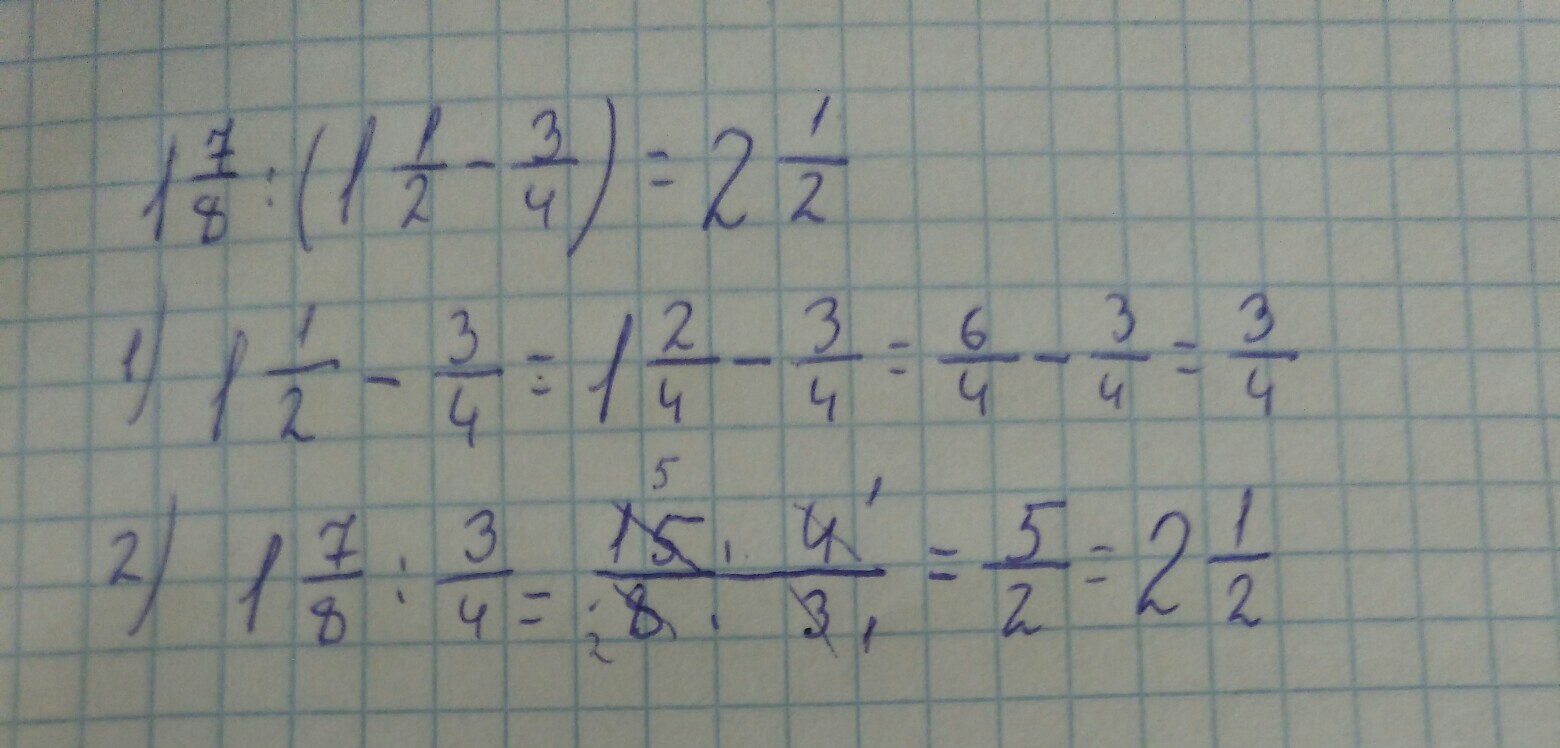 1 7/8 : (1 1/2 - 3/4) = 2 1/2
1) 1 1/2 - 3/4 = 1 2/4 - 3/4 = 6/4 - 3/4 = 3/4
2) 1 7/8 : 3/4 = 15 5 · 4 1 / 8 2 · 3 1 = 5/2 = 2 1/2